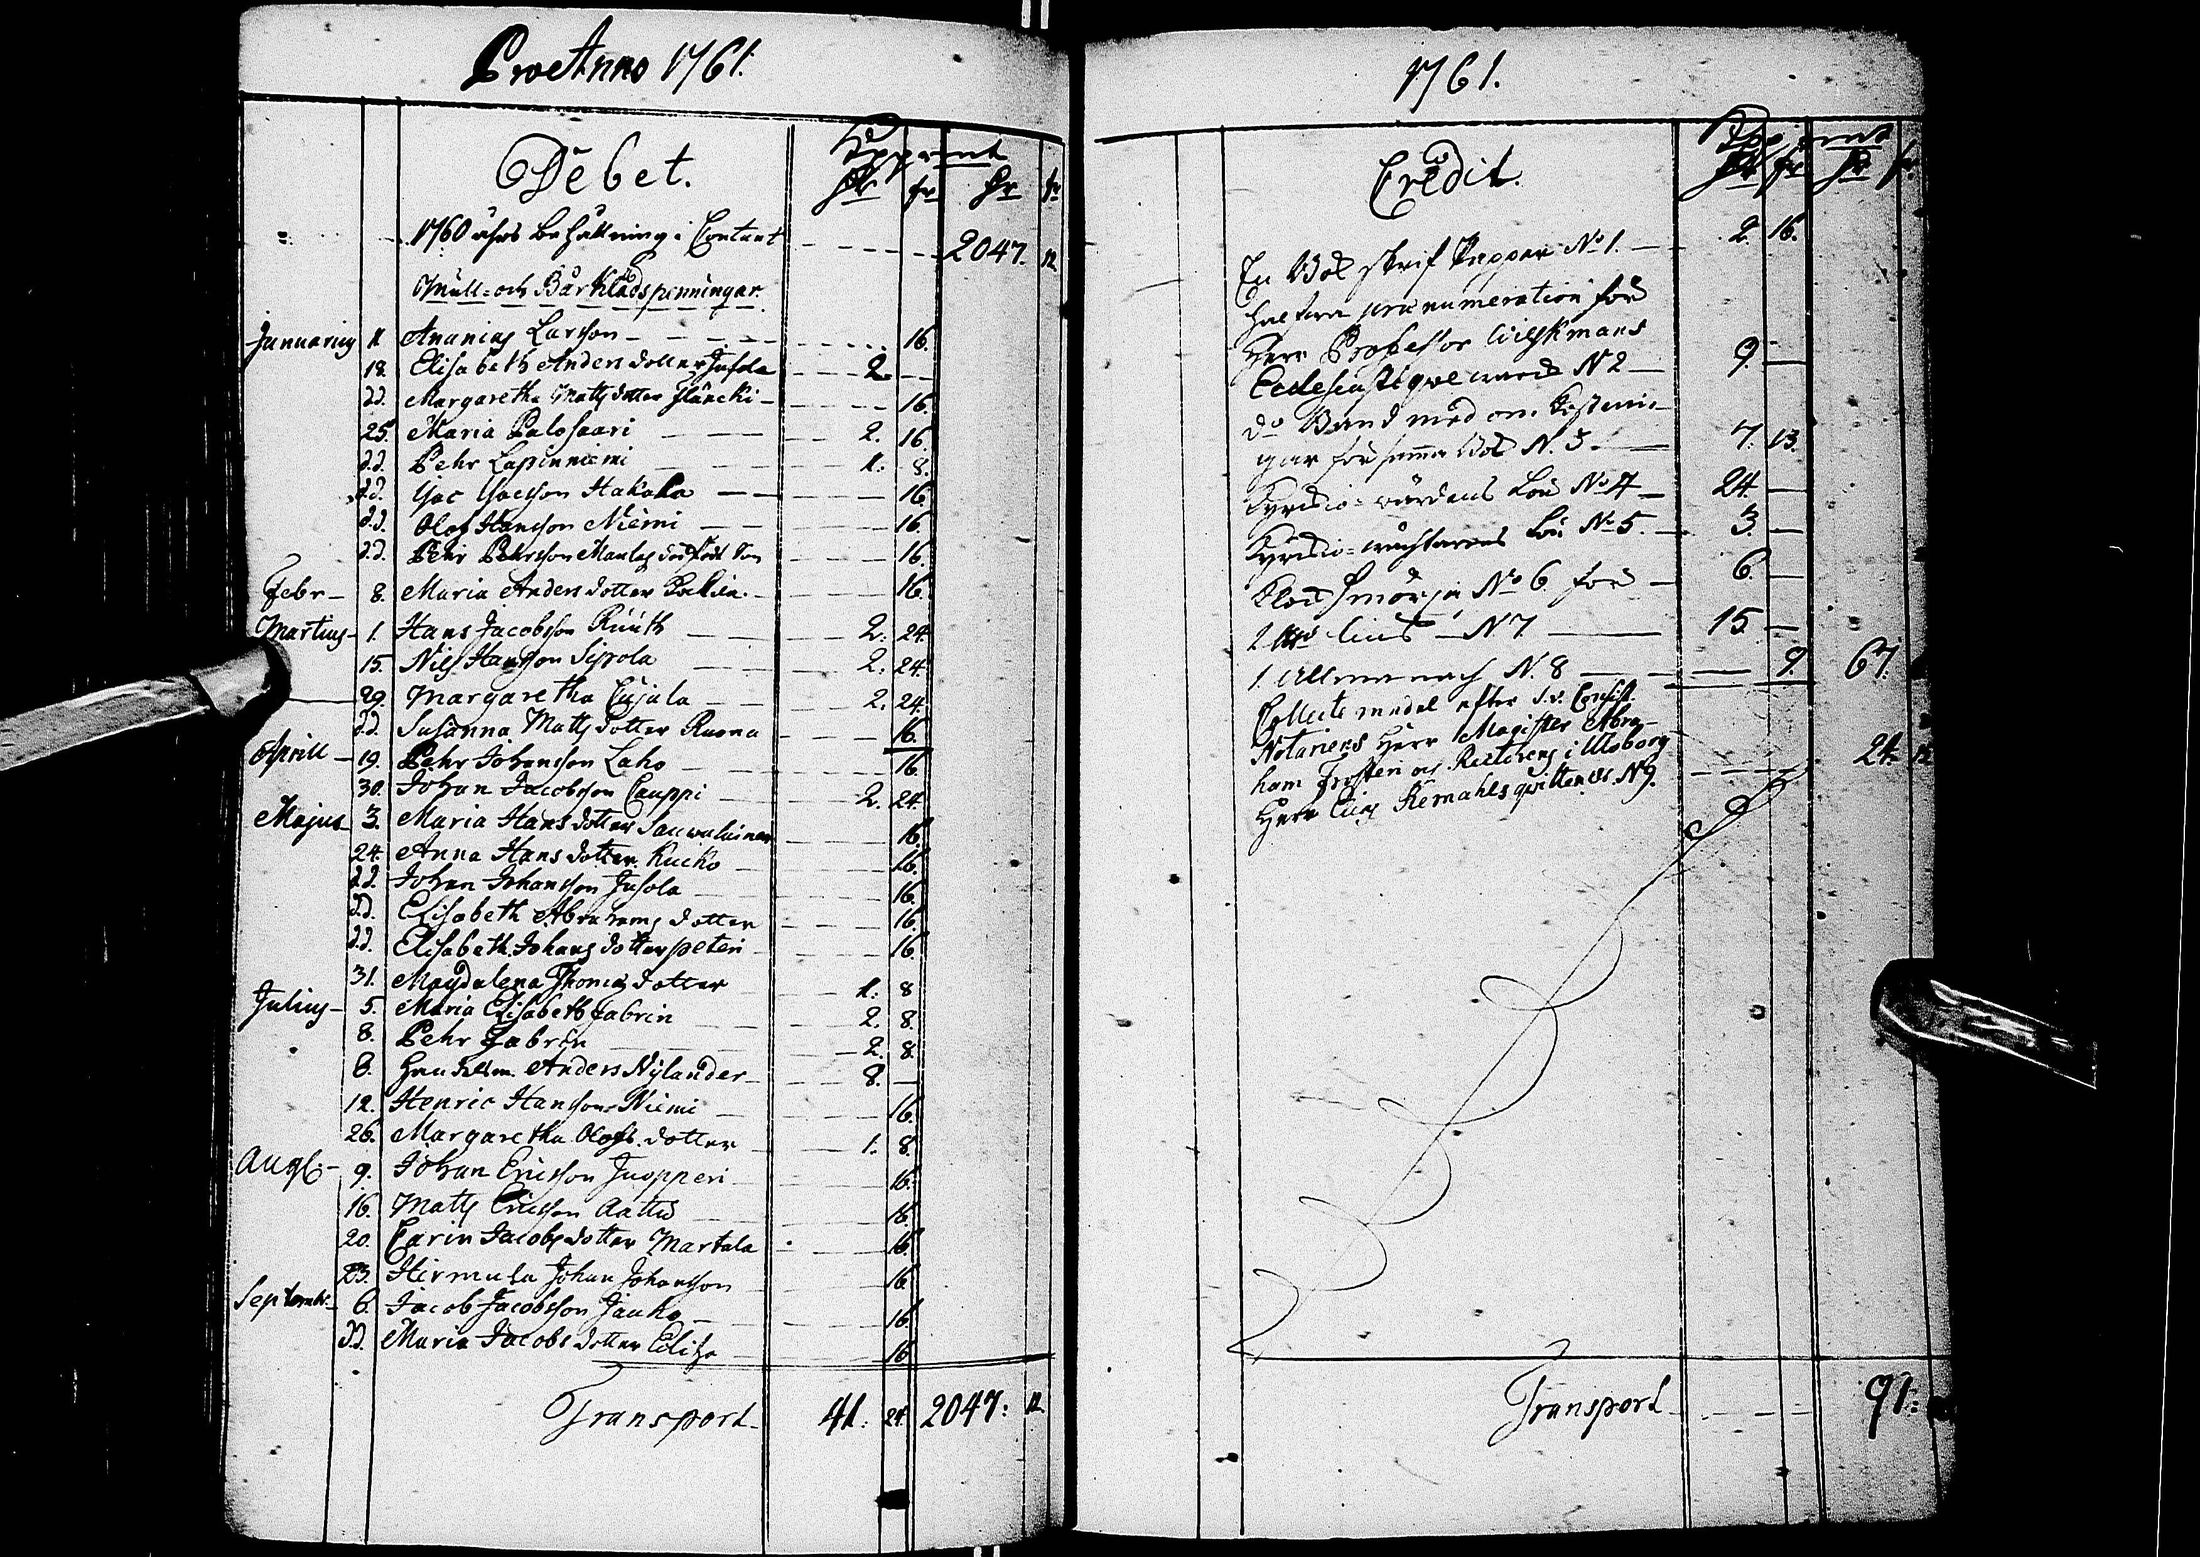 Pro Anno 1761.
Debet.
1760 åhrs behållning i Contant 2047. 12
Mull= och Bårklädspenningar.
Januarius 11 Ananias Larsson 16.
18. Elisabeth Anders dotter Jusola 2. —
dd. Margaretha Matts dotter 16.
25. Maria Palosaari 2. 16.
dd. Pehr Lapinniemi 1. 8.
dd. Jac Jacsson Hakala 16.
dd. Olof Hansson Niemi 16.
dd. Pehr Pehrsson 16.
Febr 8. Maria Anders dotter 16.
Martius 1. Hans Jacobsson Ruuth 2. 24.
15. Nils Hansson Sipola 2. 24.
29. Margaretha Cujala 2. 24.
dd. Susanna Matts dotter Ruona 16.
Aprill 19. Pehr Johansson Laho 16.
30. Johan Jacobsson Cauppi 2. 24.
Majus 3. Maria Hans dotter 16.
24. Anna Hans dotter Kucko 16.
dd. Johan Johansson Jusola 16.
dd. Elisabeth Abrahams dotter 16.
dd. Elisabeth Johans dotter peteri 16.
31. Magdalena Thomas dotter 1. 8
Julius 5. Maria Elisabeth Fabrin 2. 8.
8. Pehr Fabrin 2. 8.
8. Anders Nylander 8. —
12. Henric Hansson Niemi 16.
26. Margaretha Olofs dotter 1. 8.
Aug. 9. Johan Ericsson Juopperi 16.
16. Matts Ericsson 16.
20. Carin Jacobs dotter Martala 16.
23. Hirmula Johan Johansson 16.
Septembr. 6. Jacob Jacobsson Jauho 16.
dd. Maria Jacobs dotter 16
Transport 41. 24. 2047. 12
1761.
Credit.
En Bok skrif Papper No 1. 2. 16.
halfwa prænumeration för
Herr Professor Wilskmans
Ecclesiastique N 2 9. —
do Band med
gar för samma N. 3. 7. 13.
Lön No 4 24. —
Lön No 5. 3. —
No 6. för 6. —
2 N 7 15. —
1. Allmanach N. 8 9. 67.
Collecte medel efter Consist.
Notariens Herr Magister Abra-
ham Frosten och Rectorens i Uloborg
Herr quittencer N 9. 24. 12
Transport 91.